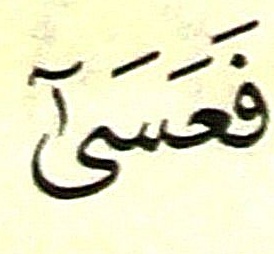 فَعَسَىٓ